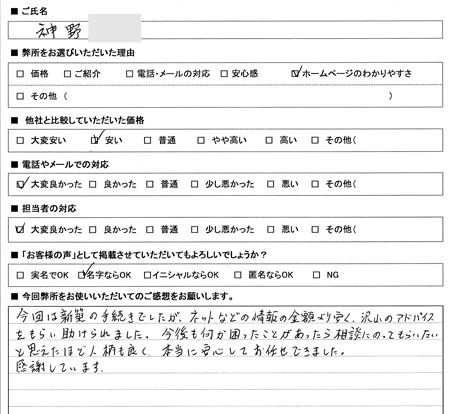 ■ ご氏名
神野
■ 弊所をお選びいただいた理由
□ 価格 □ ご紹介 □ 電話・メールの対応 □ 安心感 ☑ ホームページのわかりやすさ
□ その他 ( )
■ 他社と比較していただいた価格
□ 大変安い ☑ 安い □ 普通 □ やや高い □ 高い □ その他(
■ 電話やメールでの対応
☑ 大変良かった □ 良かった □ 普通 □ 少し悪かった □ 悪い □ その他(
■ 担当者の対応
☑ 大変良かった □ 良かった □ 普通 □ 少し悪かった □ 悪い □ その他(
■ 「お客様の声」として掲載させていただいてもよろしいでしょうか？
□ 実名でOK ☑ 名字ならOK □ イニシャルならOK □ 匿名ならOK □ NG
■ 今回弊所をお使いいただいてのご感想をお願いします。
今回は新築の手続きでしたが、ネットなどの情報の金額より安く、沢山のアドバイス
をもらい助けられました。今後も何か困ったことがあったら相談にのってもらいたい
と思えたほど人柄も良く、本当に安心してお任せできました。
感謝しています。